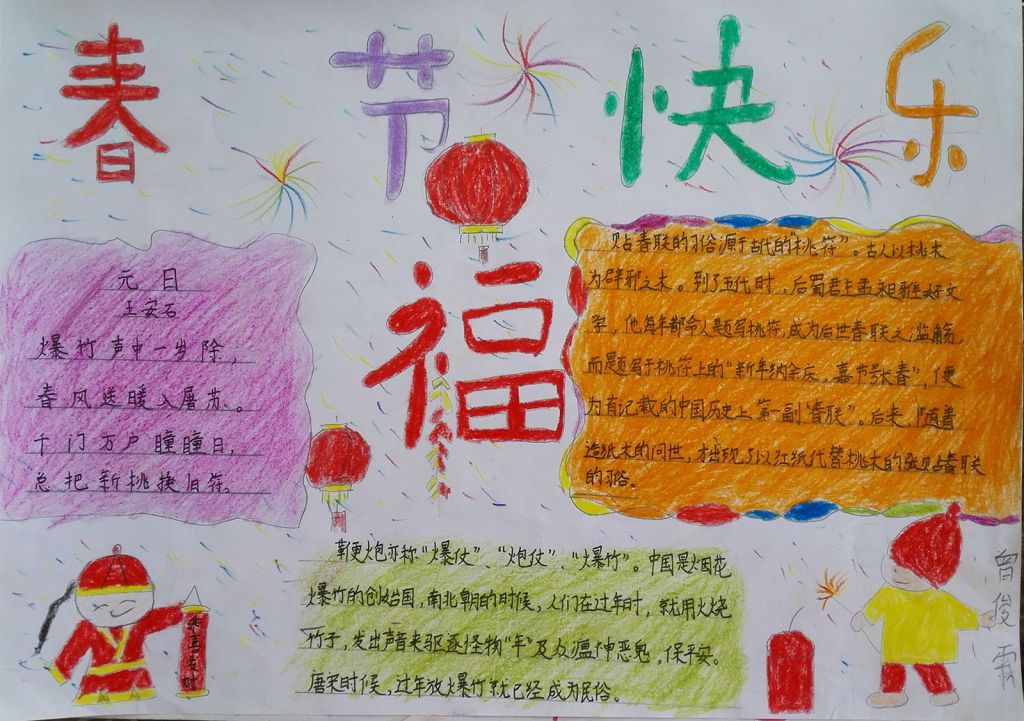 春节快乐
福
元日
王安石
爆竹声中一岁除，
春风送暖入屠苏。
千门万户瞳瞳日，
总把新桃换旧符。
贴春联的习俗源于古代的“桃符”。古人以桃木
为辟邪之木。到了五代时，后蜀君主孟昶雅好文
学，他每年都命人题写桃符，成为后世春联之滥觞，
而题写于桃符上的“新年纳余庆，嘉节号长春”，便
为有记载的中国历史上第一副“春联”。后来，随着
造纸术的问世，才出现了以红纸代替桃木的张贴春联
的习俗。
鞭炮亦称“爆仗”、“炮仗”、“爆竹”。中国是烟花
爆竹的创始国，南北朝的时候，人们在过年时，就用火烧
竹子，发出声音来驱逐怪物“年”及众瘟神恶鬼，保平安。
唐宋时候，过年放爆竹就已经成为民俗。
恭喜发财
曾俊霖